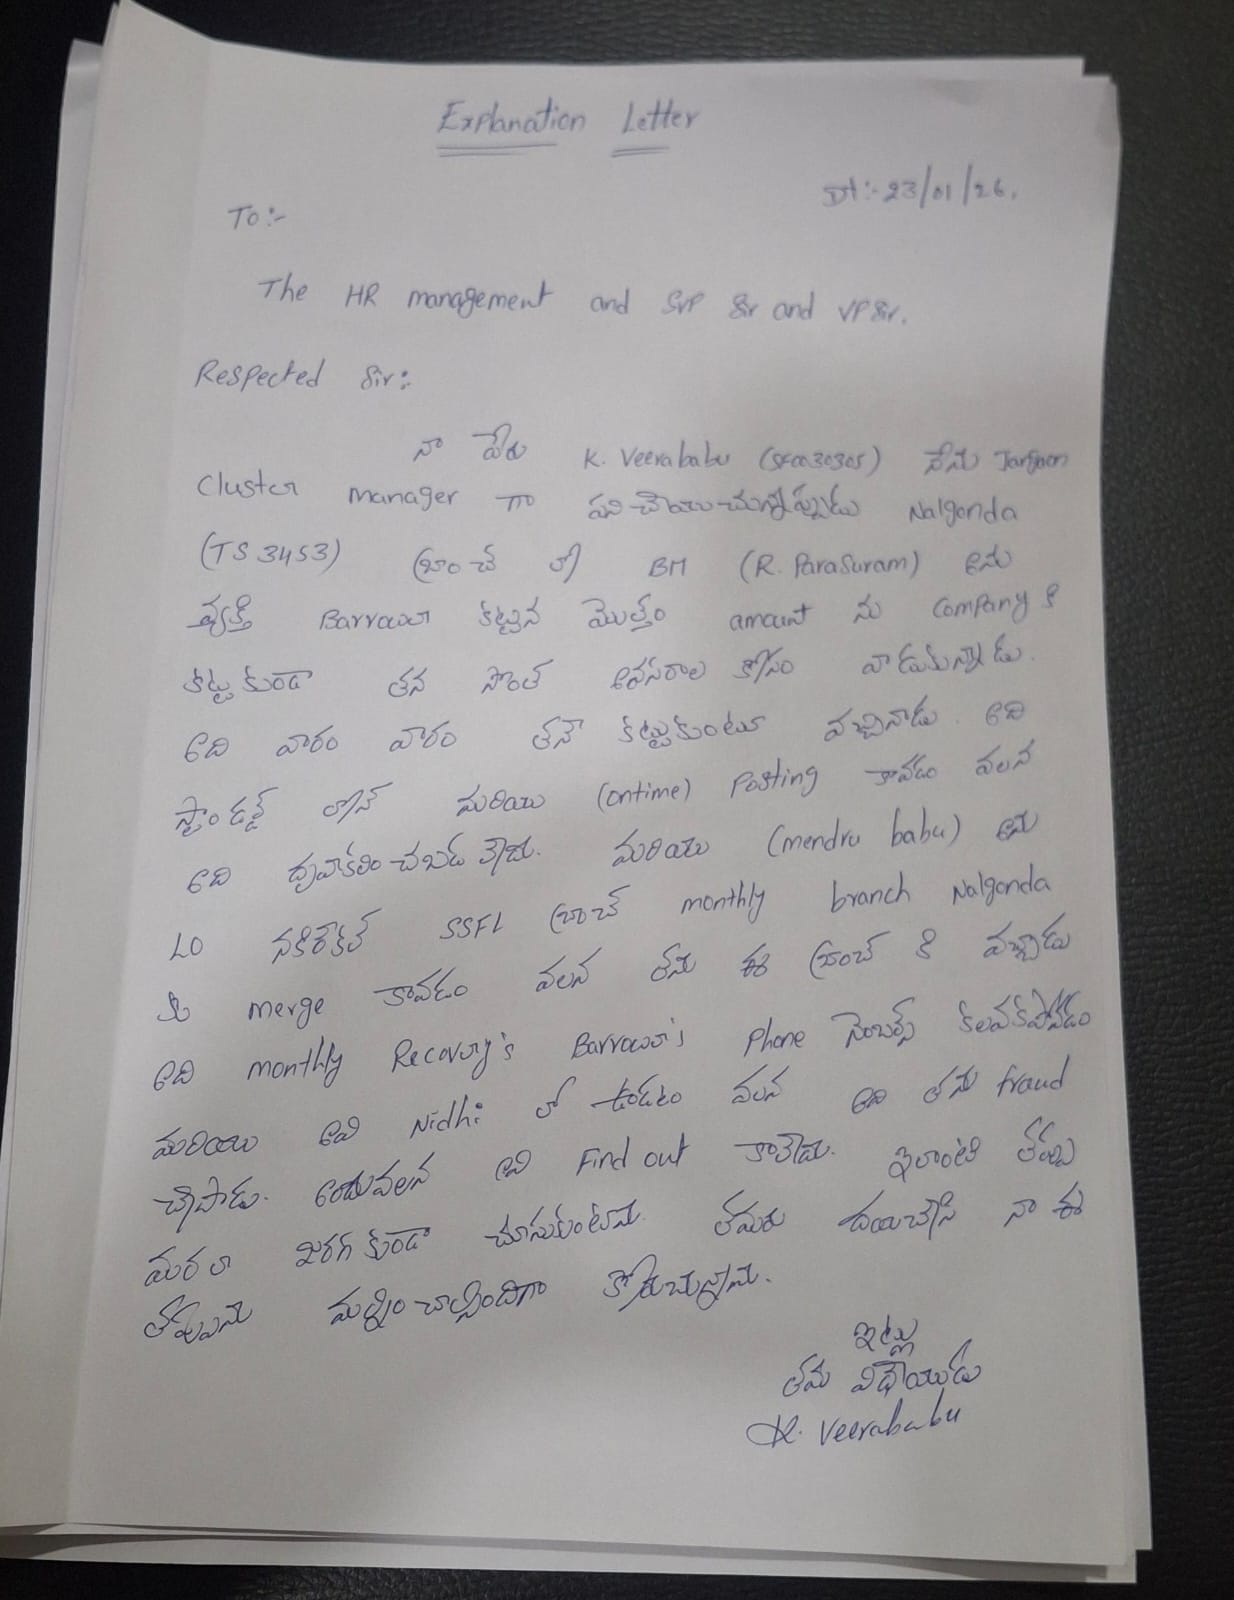 Explanation Letter
Dt:- 23/01/26.
To:-
The HR management and SVP Sir and VP Sir.
Respected Sir:-
నా పేరు K. Veerababu (SF0030305) నేను Jangaon
Cluster manager గా పని చేయుచున్నప్పుడు Nalgonda
(TS 3453) బ్రాంచ్ లో BM (R. ParaSuram) అను
వ్యక్తి Barrower కట్టిన మొత్తం amount ను company కి
కట్టకుండా తన సొంత అవసరాల కోసం వాడుకున్నాడు.
అది వారం వారం తనే కట్టుకుంటూ వచ్చినాడు. అది
స్టాండర్డ్ లోన్ మరియు (ontime) Posting కావడం వలన
అది మరియు (mendru babu) అను
LO నకిరేకల్ SSFL బ్రాంచ్ monthly branch Nalgonda
కు merge కావడం వలన తను ఈ బ్రాంచ్ కి వచ్చాడు
అది monthly Recovery's Barrower's Phone నెంబర్స్ కలవకపోవడం
మరియు అవి Nidhi లో ఉండటం వలన అది తను fraud
చేసాడు. అందువలన అవి Find out కాలేదు. ఇలాంటి తప్పు
మరలా జరగకుండా చూసుకుంటాను. తమరు దయచేసి నా ఈ
తప్పును మన్నించాల్సిందిగా కోరుచున్నాను.
ఇట్లు
తమ విధేయుడు
K. Veerababu